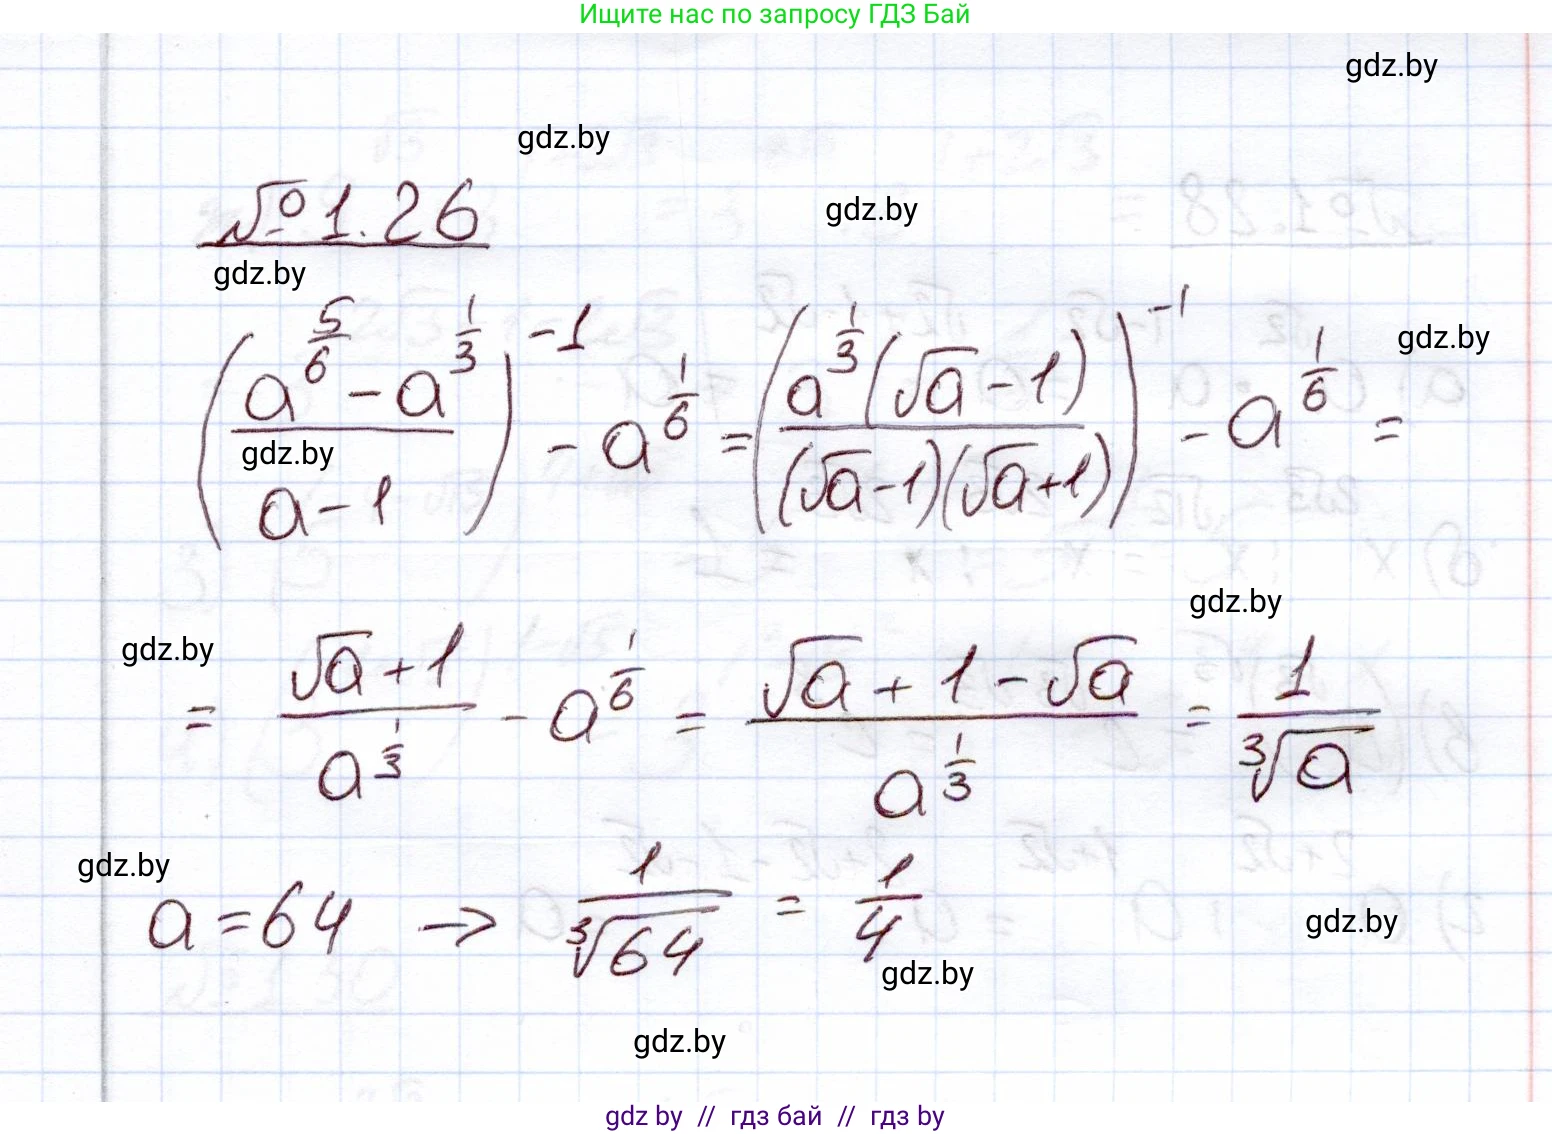 Ищите нас по запросу ГДЗ Бай
gdz.by
gdz.by
№ 1.26
gdz.by
gdz.by
(a^(5/6) - a^(1/3) / a - 1)^(-1) - a^(1/6) = (a^(1/3)(√a - 1) / (√a - 1)(√a + 1))^(-1) - a^(1/6) =
gdz.by
gdz.by
gdz.by
gdz.by
= (√a + 1) / a^(1/3) - a^(1/6) = (√a + 1 - √a) / a^(1/3) = 1 / ∛a
gdz.by
a = 64 → 1 / ∛64 = 1/4
gdz.by
gdz.by
gdz.by
gdz by // гдз бай // гдз by